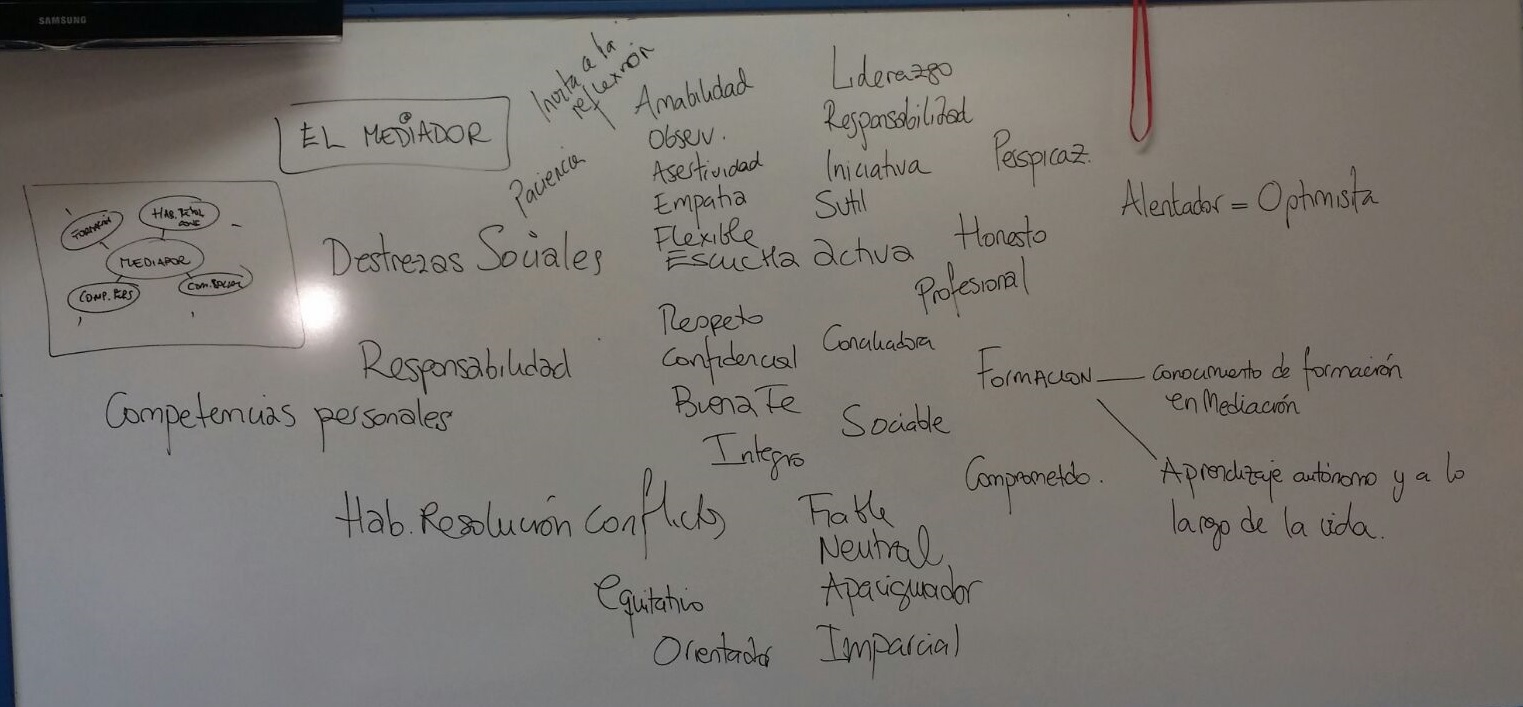 SAMSUNG
EL MEDIADOR
Invita a la
reflexión
Paciencia
Amabilidad
Observ.
Asertividad
Empatia
Flexible
Escucha activa
Liderazgo
Responsabilidad
Iniciativa
Sutil
Perspicaz.
Alentador = Optimista
Honesto
Profesional
FORMACIÓN
HAB. RESOL
CONF
MEDIADOR
COMP. PERS
COM. SOCIAL
Destrezas Sociales
Respeto
Confidencial
Buena Fe
Integro
Conciliadora
Sociable
Responsabilidad
Competencias personales
FORMACION
conocimiento de formación
en Mediación
Aprendizaje autónomo y a lo
largo de la vida.
Comprometido.
Hab. Resolución conflictos
Fiable
Neutral
Apaciguador
Imparcial
equitativo
Orientador